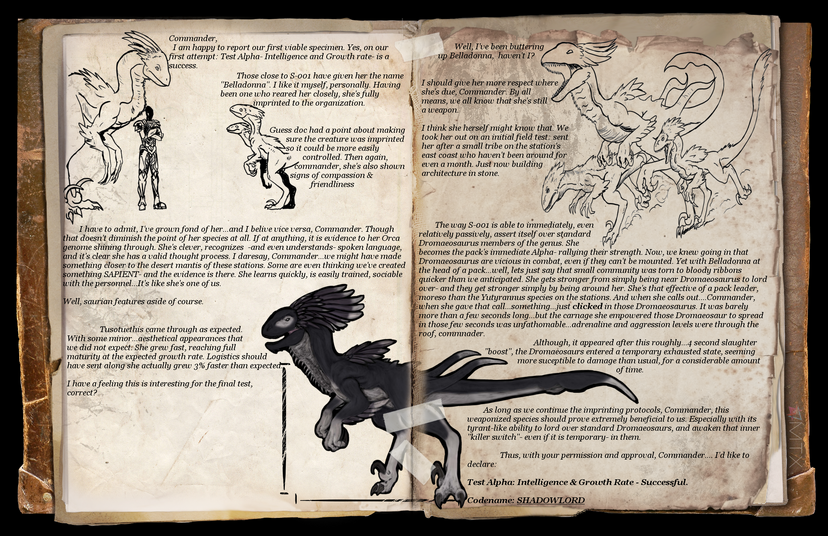 Commander,
I am happy to report our first viable specimen. Yes, on our
first attempt: Test Alpha- Intelligence and Growth rate- is a
success.
Those close to S-001 have given her the name
"Belladonna". I like it myself, personally. Having
been one who reared her closely, she's fully
imprinted to the organization.
Guess doc had a point about making
sure the creature was imprinted
so it could be more easily
controlled. Then again,
commander, she's also shown
signs of compassion &
friendliness
I have to admit, I've grown fond of her...and I belive vice versa, Commander. Though
that doesn't diminish the point of her species at all. If at anything, it is evidence to her Orca
genome shining through. She's clever, recognizes -and even understands- spoken language,
and it's clear she has a valid thought process. I daresay, Commander...we might have made
something closer to the desert mantis of these stations. Some are even thinking we've created
something SAPIENT- and the evidence is there. She learns quickly, is easily trained, sociable
with the personnel...It's like she's one of us.
Well, saurian features aside of course.
Tusoteuthis came through as expected.
With some minor...aesthetical appearances that
we did not expect: She grew fast, reaching full
maturity at the expected growth rate. Logistics should
have sent along she actually grew 3% faster than expected.
I have a feeling this is interesting for the final test,
correct?
Well, I've been buttering
up Belladonna, haven't I?
I should give her more respect where
she's due, Commander. By all
means, we all know that she's still
a weapon.
I think she herself might know that. We
took her out on an initial field test: sent
her after a small tribe on the station's
east coast who haven't been around for
even a month. Just now building
architecture in stone.
The way S-001 is able to immediately, even
relatively passively, assert itself over standard
Dromaeosaurus members of the genus. She
becomes the pack's immediate Alpha- rallying their strength. Now, we knew going in that
Dromaeosaurus are vicious in combat, even if they can't be mounted. Yet with Belladonna at
the head of a pack...well, lets just say that small community was torn to bloody ribbons
quicker than we anticipated. She gets stronger from simply being near Dromaeosaurus to lord
over- and they get stronger simply by being around her. She's that effective of a pack leader,
moreso than the Yutyrannus species on the stations. And when she calls out....Commander,
when she gave that call...something...just clicked in those Dromaeosaurus. It was barely
more than a few seconds long...but the carnage she empowered those Dromaeosaur to spread
in those few seconds was unfathomable...adrenaline and aggression levels were through the
roof, commnader.
Although, it appeared after this roughly...4 second slaughter
"boost", the Dromaeosaurus entered a temporary exhausted state, seeming
more suseptible to damage than usual, for a considerable amount
of time.
As long as we continue the imprinting protocols, Commander, this
weaponized species should prove extremely beneficial to us. Especially with its
tyrant-like ability to lord over standard Dromaeosaurs, and awaken that inner
"killer switch"- even if it is temporary- in them.
Thus, with your permission and approval, Commander.... I'd like to
declare:
Test Alpha: Intelligence & Growth Rate - Successful.
Codename: SHADOWLORD